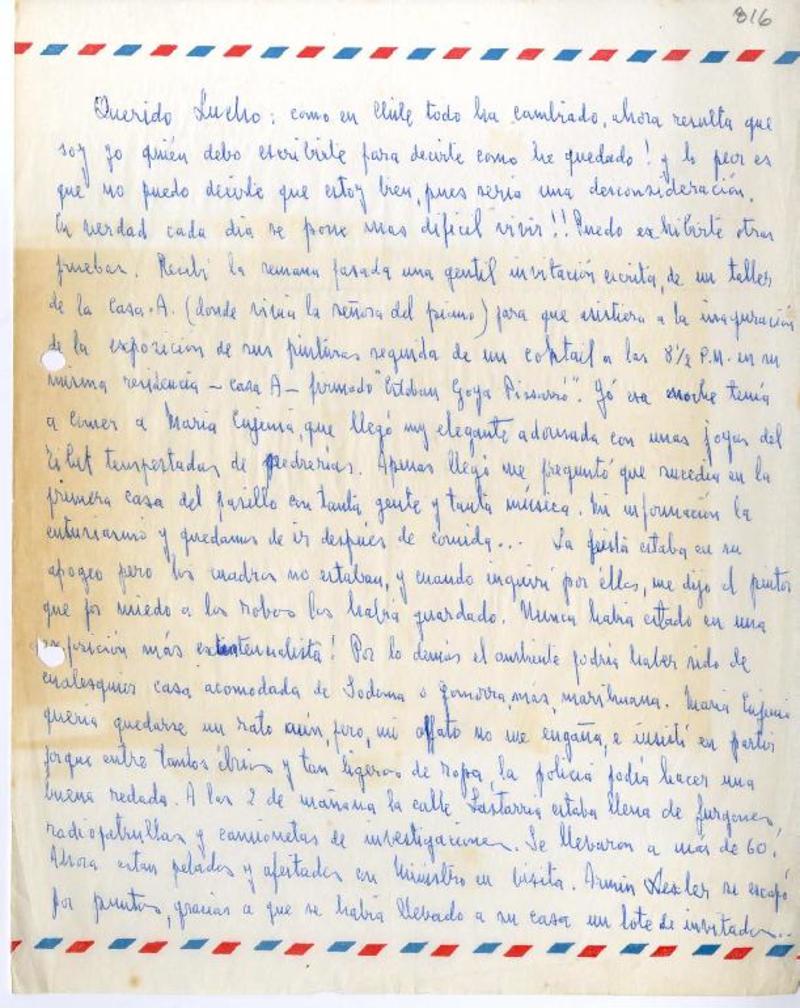 816
Querido Lucho: como en Chile todo ha cambiado, ahora resulta que
soy yo quién debo escribirte para decirte como he quedado! y lo peor es
que no puedo decirte que estoy bien, pues sería una desconsideración.
En verdad cada día se pone mas dificil vivir!! Puedo exhibirte otras
pruebas. Recibí la semana pasada una gentil invitación escrita, de un taller
de la Casa.A. (donde vivía la señora del piano) para que asistiera a la inaguración
de la exposicion de sus pinturas seguida de un coktail a las 8½ P.M. en su
misma residencia – casa A – firmado "Esteban Goya Pissarró". Yó esa noche tenía
a comer a María Eujenia, que llegó my elegante adornada con unas joyas del
Tibet tempestadas de pedrerías. Apenas llegó me preguntó que sucedía en la
primera casa del pasillo con tanta gente y tanta música. Mi información la
entusiasmó y quedamos de ir después de comida... La fiesta estaba en su
apogeo pero los cuadros no estaban, y cuando inquirí por éllos, me dijo el pintor
que por miedo a los robos los había guardado. Nunca había estado en una
exposición más existencialista! Por lo demás el ambiente podría haber sido de
cualesquier casa acomodada de Sodoma o Gomorra, más, marihuana. María Eujenia
quería quedarse un rato aún, pero, mi olfato no me engaña, e insistí en partir
porque entre tantos ébrios y tan ligeros de ropa, la policía podía hacer una
buena redada. A las 2 de mañana la calle Lastarria estaba llena de furgones,
radiopatrullas y camionetas de investigaciones. Se llevaron a más de 60.
Ahora estan pelados y afeitados con Ministro en visita. Armin se escapó
por puntos, gracias a que se había llevado a su casa un lote de invitados...